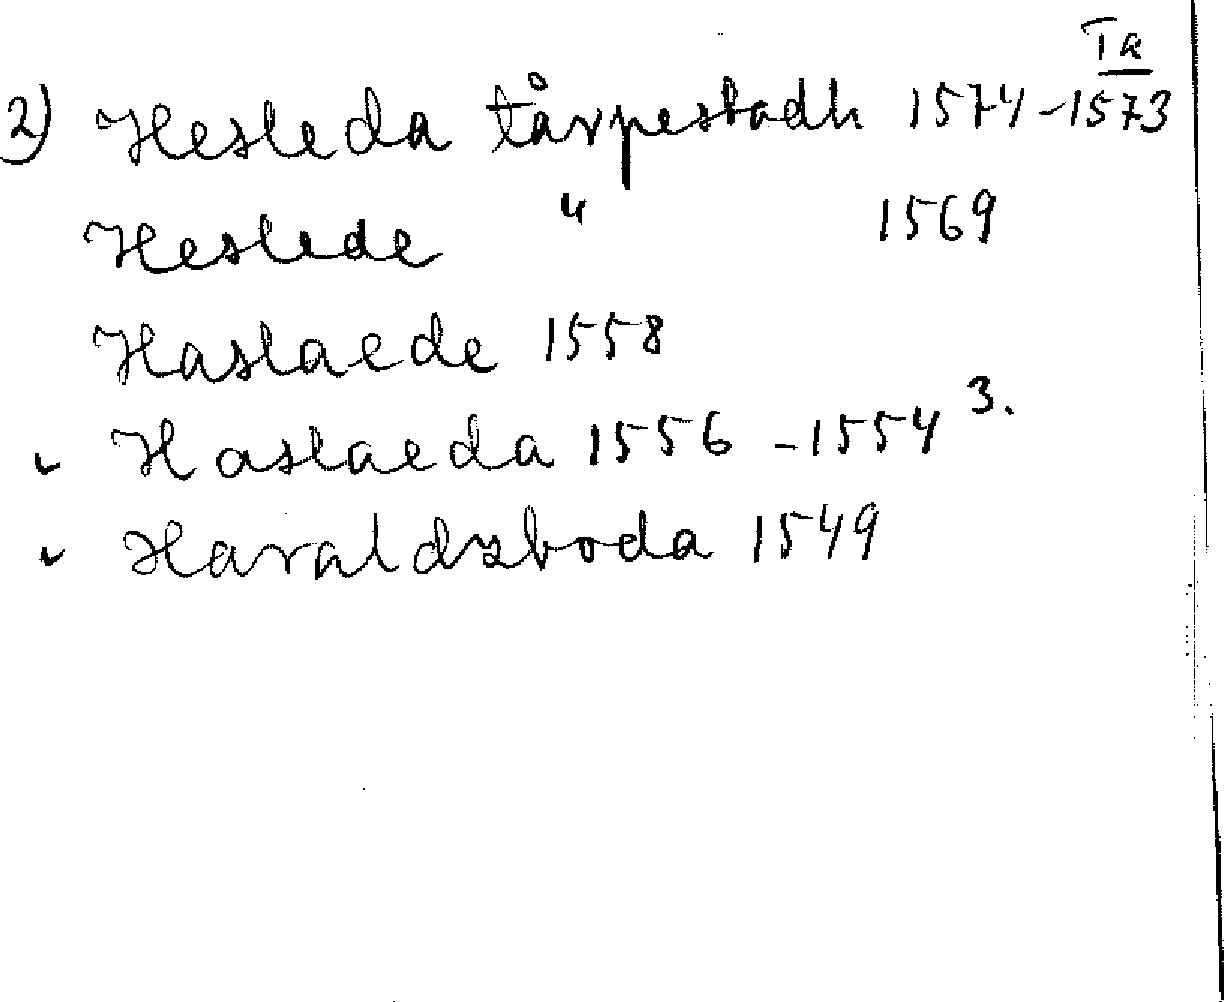 Ta
2) Hesleda tårpestadh 1574-1573
Heslede " 1569
Haslaede 1558
Haslaeda 1556 -1554 3.
Haraldzboda 1549